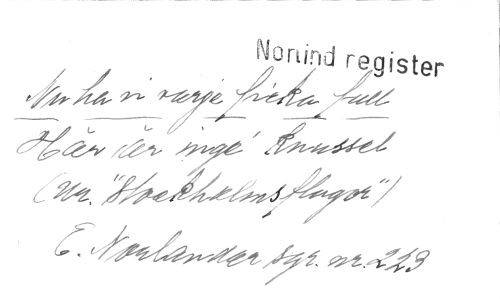 Nonind register
Nu ha vi varje ficka full
Här är inge' knussel
(ur. "Stockholmsflugor")
E. Norlander sgr. nr. 223